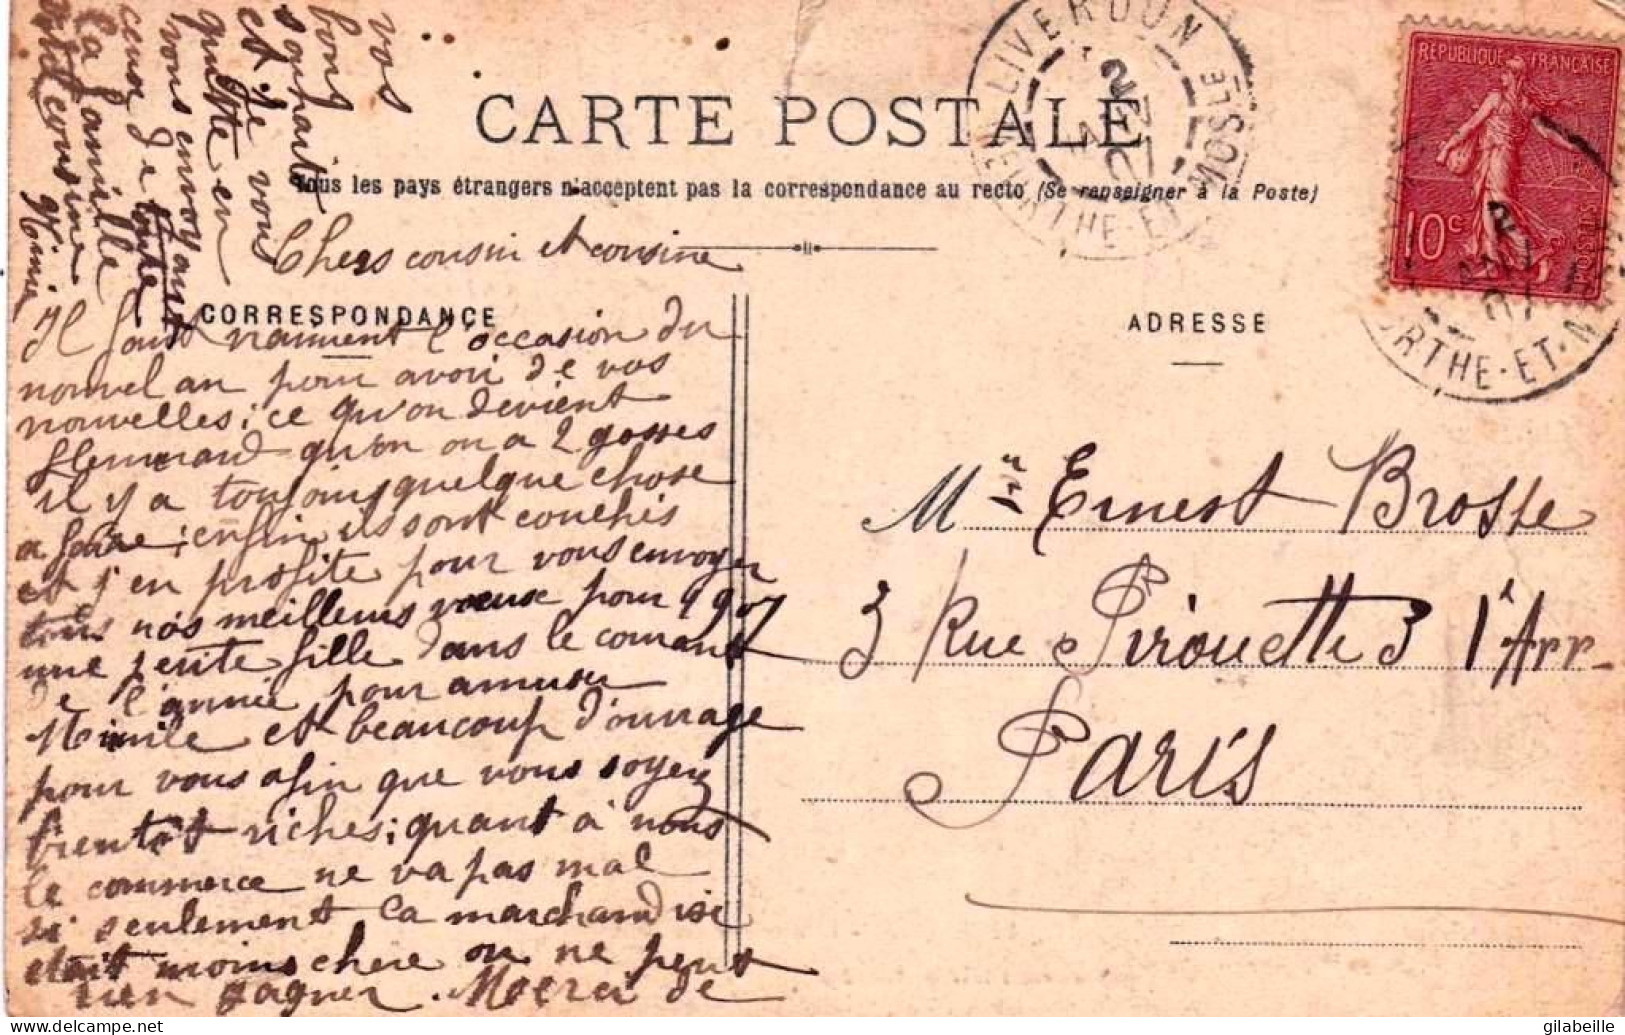 CARTE POSTALE
Tous les pays étrangers n'acceptent pas la correspondance au recto (Se renseigner à la Poste)
CORRESPONDANCE
ADRESSE
LIVERDUN
MEURTHE-ET-MOSELLE
REPUBLIQUE FRANÇAISE
10c
POSTES
RTHE-ET-M
Chers cousin et cousine
Il faut vraiment l'occasion du
nouvel an pour avoir de vos
nouvelles; ce qu'on devient
flemmard qu'en on a 2 gosses
il y a toujours quelque chose
a faire; enfin ils sont couchés
et j'en profite pour vous envoyer
tous nos meilleurs vœux pour 1907
une petite fille dans le courant
de l'année pour amuser
Mimile et beaucoup d'ouvrage
pour vous afin que vous soyez
bientôt riches; quant à nous
le commerce ne va pas mal
si seulement la marchandise
était moins chere on ne peut
rien gagner. Merci de
vos
bons
souhaits
et je vous
quitte en
vous envoyant
ceux de toute
la famille
votre cousine
Mimie
Mr Ernest Brosse
3 Rue Pirouette 3 1r Arr
Paris
delcampe.net
gilabeille